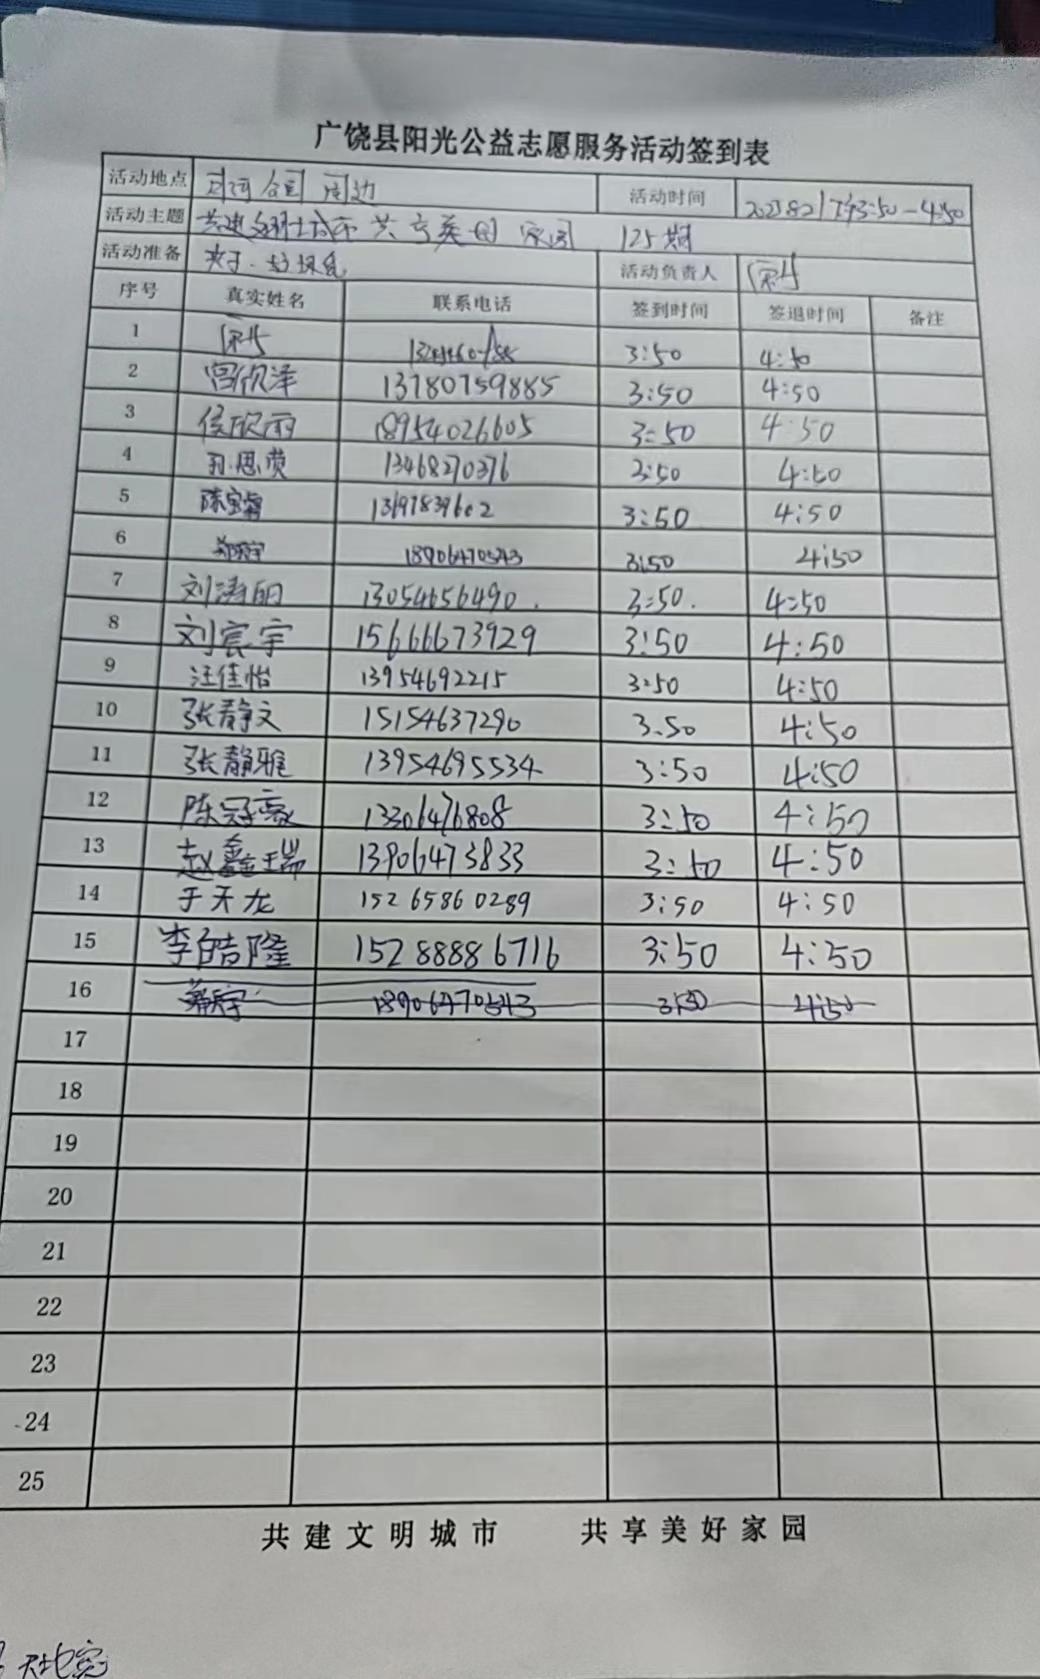 广饶县阳光公益志愿服务活动签到表
活动地点 周边 活动时间 3:50-4:50
活动主题 共建 共享美 家园 125期
活动准备 夹子. 活动负责人
序号 真实姓名 联系电话 签到时间 签退时间 备注
1 3:50 4:50
2 13780759885 3:50 4:50
3 侯欣雨 18954026605 3:50 4:50
4 13468270376 3:50 4:50
5 陈宝睿 13697839602 3:50 4:50
6 18906470543 3:50 4:50
7 刘涛 13054656490. 3:50. 4:50
8 刘宸宇 15666673929 3:50 4:50
9 汪佳怡 13954692215 3:50 4:50
10 张静文 15154637290 3:50 4:50
11 张静雅 13954695534 3:50 4:50
12 陈冠豪 13306476808 3:50 4:50
13 赵鑫瑞 13906473833 3:50 4:50
14 于天龙 15265860289 3:50 4:50
15 李皓隆 15288886716 3:50 4:50
16 18906470543 3:50 4:50
17
18
19
20
21
22
23
24
25
共建文明城市 共享美好家园